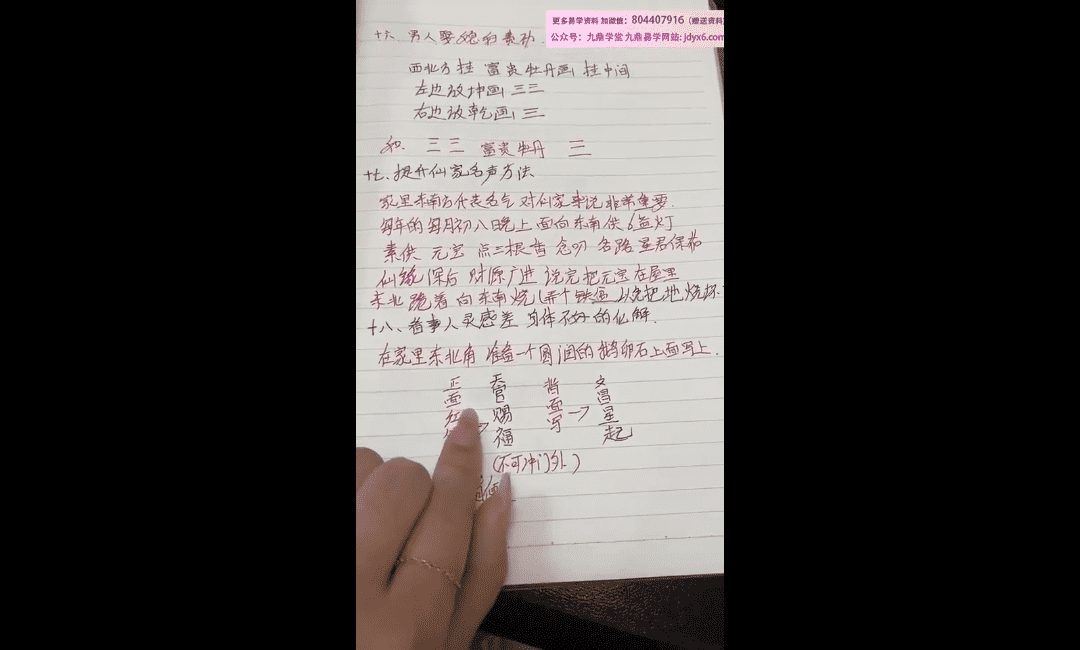 更多易学资料 加微信：804407916（赠送资料
公众号：九鼎学堂 九鼎易学网站: jdyx6.com
十六 男人娶媳妇
西北方挂 富贵牡丹画 挂中间
左边放坤画 三三
右边放乾画 三
三三 富贵牡丹 三
十七、提升仙家名声方法
家里东南方代表名气 对仙家来说非常重要.
每年的每月初八晚上 面向东南供 6盏灯
素供 元宝 点三根香 念叨 各路星君保佑
仙缘深后 财源广进 说完把元宝在屋里
东北 跪着 向东南烧(弄个铁盆 以免把地烧坏
十八、看事人灵感差 身体不好的化解.
在家里东北角 准备一个圆润的鹅卵石上面写上.
正面红 → 天官赐福 背面写 → 文昌星起
(不可冲门外)